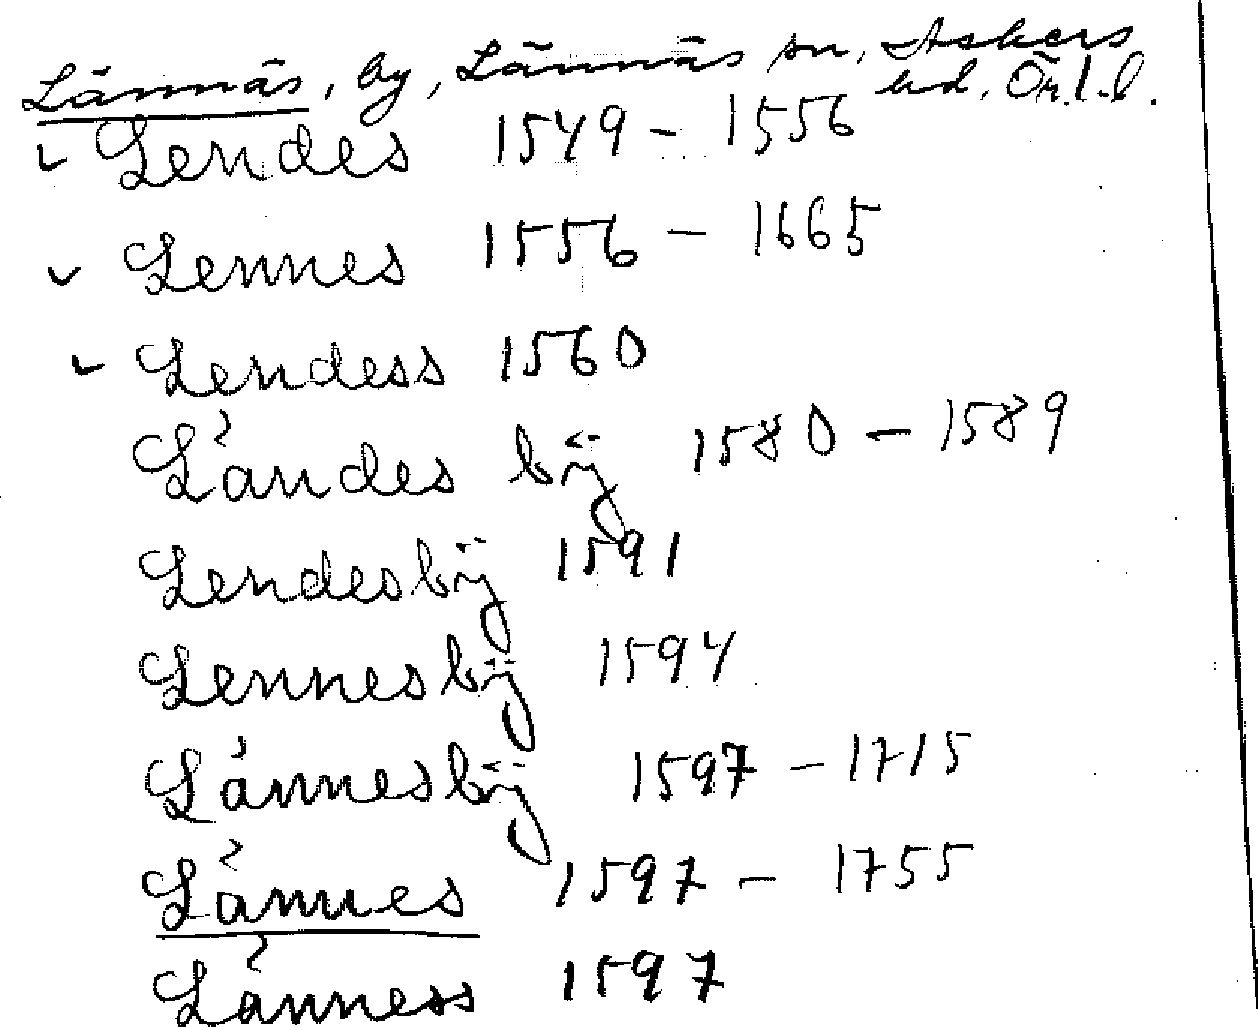 Lännäs, by, Lännäs sn, Askers
hd, Ör. l.
Lendes 1549 - 1556
Lennes 1556 - 1665
Lendess 1560
Ländes bÿ 1580 - 1589
Lendesbÿ 1591
Lennesbÿ 1594
Lännesbÿ 1597 - 1715
Lännes 1597 - 1755
Länness 1597